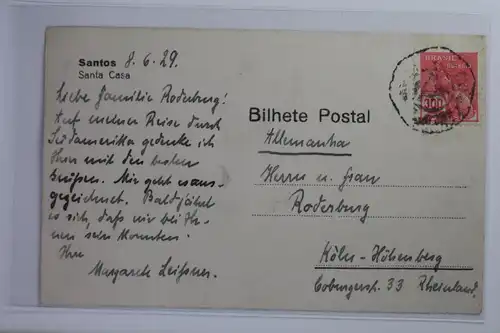 Santos 8.6.29.
Santa Casa
Liebe Familie Roderburg!
Auf meiner Reise durch
Südamerika gedenke ich
Ihrer mit den besten
Grüßen. Mir geht es aus-
gezeichnet. Bald jährt
es sich, daß wir bei Ih-
nen sein konnten.
Ihre
Margarete Leißner.
BRASIL
300
Bilhete Postal
Allemanha
Herrn u. Frau
Roderburg
Köln-Höhenberg
Coburgerstr. 33 Rheinland.